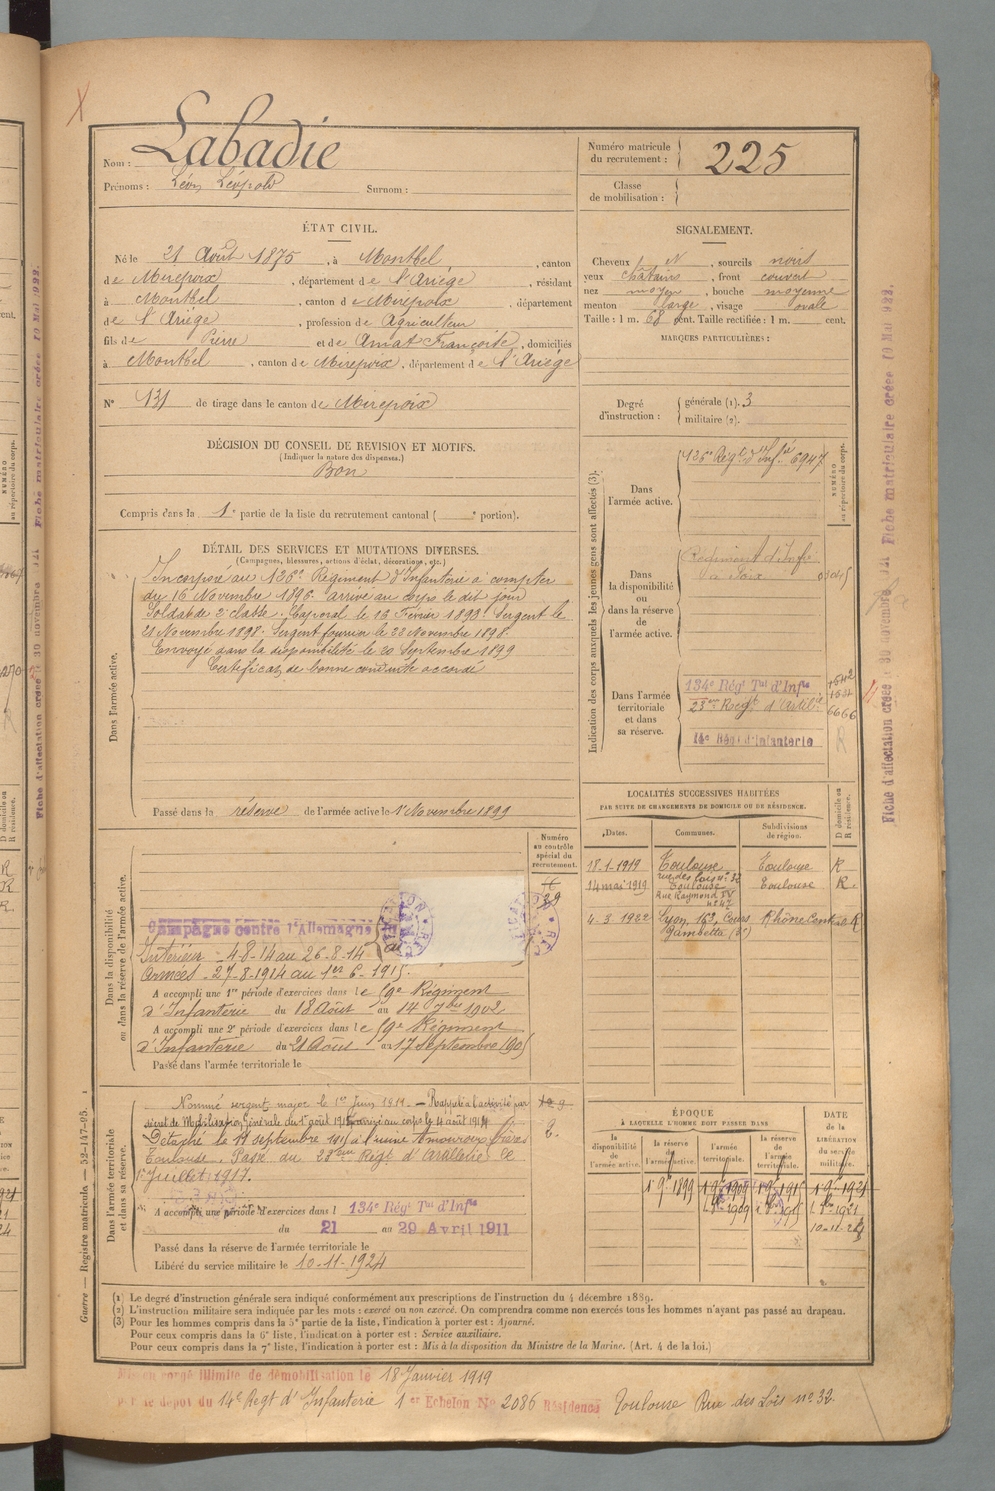 Nom : Labadie
Prénoms : Léon Léopold Surnom :
Numéro matricule du recrutement : 225
Classe de mobilisation :
ÉTAT CIVIL.
Né le 21 Août 1875, à Montbel, canton
de Mirepoix, département de l'Ariége, résidant
à Montbel, canton de Mirepoix, département
de l'Ariége, profession de Agriculteur
fils de Pierre et de Amat Françoise, domiciliés
à Montbel, canton de Mirepoix, département de l'Ariége
N° 131 de tirage dans le canton de Mirepoix
SIGNALEMENT.
Cheveux N, sourcils noirs
yeux châtains, front couvert
nez moyen, bouche moyenne
menton large, visage ovale
Taille : 1 m. 68 cent. Taille rectifiée : 1 m. cent.
MARQUES PARTICULIÈRES :
DÉCISION DU CONSEIL DE REVISION ET MOTIFS.
(Indiquer la nature des dispenses.)
Bon
Compris dans la 1e partie de la liste du recrutement cantonal ( e portion).
Degré d'instruction : générale (1). 3
militaire (2).
DÉTAIL DES SERVICES ET MUTATIONS DIVERSES.
(Campagnes, blessures, actions d'éclat, décorations, etc.)
Dans l'armée active.
Incorporé au 126e Régiment d'Infanterie à compter
du 16 Novembre 1896. Arrivé au corps le dit jour
Soldat de 2e classe. Caporal le 16 Février 1898. Sergent le
21 Novembre 1898. Sergent fourrier le 28 Novembre 1898.
Envoyé dans la disponibilité le 20 Septembre 1899
Certificat de bonne conduite accordé
Passé dans la réserve de l'armée active le 1er Novembre 1899
Indication des corps auxquels les jeunes gens sont affectés (3).
NUMÉRO au répertoire du corps.
Dans l'armée active.
126e Régt d'Infie 6947
Dans la disponibilité ou dans la réserve de l'armée active.
Régiment d'Infie
Foix
Dans l'armée territoriale et dans sa réserve.
134e Régt Tal d'Infie
23me Régt d'Artillie
14e Régt d'Infanterie
1542
6666
R
LOCALITÉS SUCCESSIVES HABITÉES
PAR SUITE DE CHANGEMENTS DE DOMICILE OU DE RÉSIDENCE.
Dates. Communes. Subdivisions de région. D domicile ou R résidence.
18-1-1919 Toulouse Toulouse R
rue des Lois n° 32
14 mai 1919 Toulouse Toulouse R
Rue Raymond IV
n° 47
4.3.1922 Lyon, 163, Cours Rhône Central R
Gambetta (3e)
Dans la disponibilité ou dans la réserve de l'armée active.
Numéro au contrôle spécial du recrutement.
29
Campagne contre l'Allemagne
Intérieur - 4-8-14 au 26-8-14
Armées - 27-8-1914 au 1er 6-1915.
A accompli une 1re période d'exercices dans le 59e Régiment
d'Infanterie du 18 Août au 14 7bre 1902
A accompli une 2e période d'exercices dans le 59e Régiment
d'Infanterie du 21 Août au 17 Septembre 1905
Passé dans l'armée territoriale le
Dans l'armée territoriale et dans sa réserve.
Nommé sergent major le 1er Juin 1911. - Rappelé à l'activité par
décret de Mobilisation Générale du 1er août 1914, arrivé au corps le 4 août 1914
Détaché le 19 septembre 1915 à l'usine Amouroux frères
Toulouse. Passé au 23ème Régt d'Artillerie le
1er Juillet 1917.
A accompli une période d'exercices dans l 134e Régt Tal d'Infie
du 21 au 29 Avril 1911
Passé dans la réserve de l'armée territoriale le
Libéré du service militaire le 10-11-1924
ÉPOQUE
À LAQUELLE L'HOMME DOIT PASSER DANS
la disponibilité de l'armée active. la réserve de l'armée active. l'armée territoriale. la réserve de l'armée territoriale.
DATE de la LIBÉRATION du service militaire.
1er 9bre 1899 1er 9bre 1909 1er 9bre 1915 1er 9bre 1921
10-11-24
(1) Le degré d'instruction générale sera indiqué conformément aux prescriptions de l'instruction du 4 décembre 1889.
(2) L'instruction militaire sera indiquée par les mots : exercé ou non exercé. On comprendra comme non exercés tous les hommes n'ayant pas passé au drapeau.
(3) Pour les hommes compris dans la 5e partie de la liste, l'indication à porter est : Ajourné.
Pour ceux compris dans la 6e liste, l'indication à porter est : Service auxiliaire.
Pour ceux compris dans la 7e liste, l'indication à porter est : Mis à la disposition du Ministre de la Marine. (Art. 4 de la loi.)
Mis en congé illimité de démobilisation le 18 Janvier 1919
par le dépôt du 14e Régt d'Infanterie 1er Echelon No 2086 Résidence Toulouse Rue des Lois n° 32
Guerre — Registre matricule — 52-147-95.
Fiche d'affectation créée le 30 novembre 1921 Fiche matriculaire créée 19 Mai 1922.